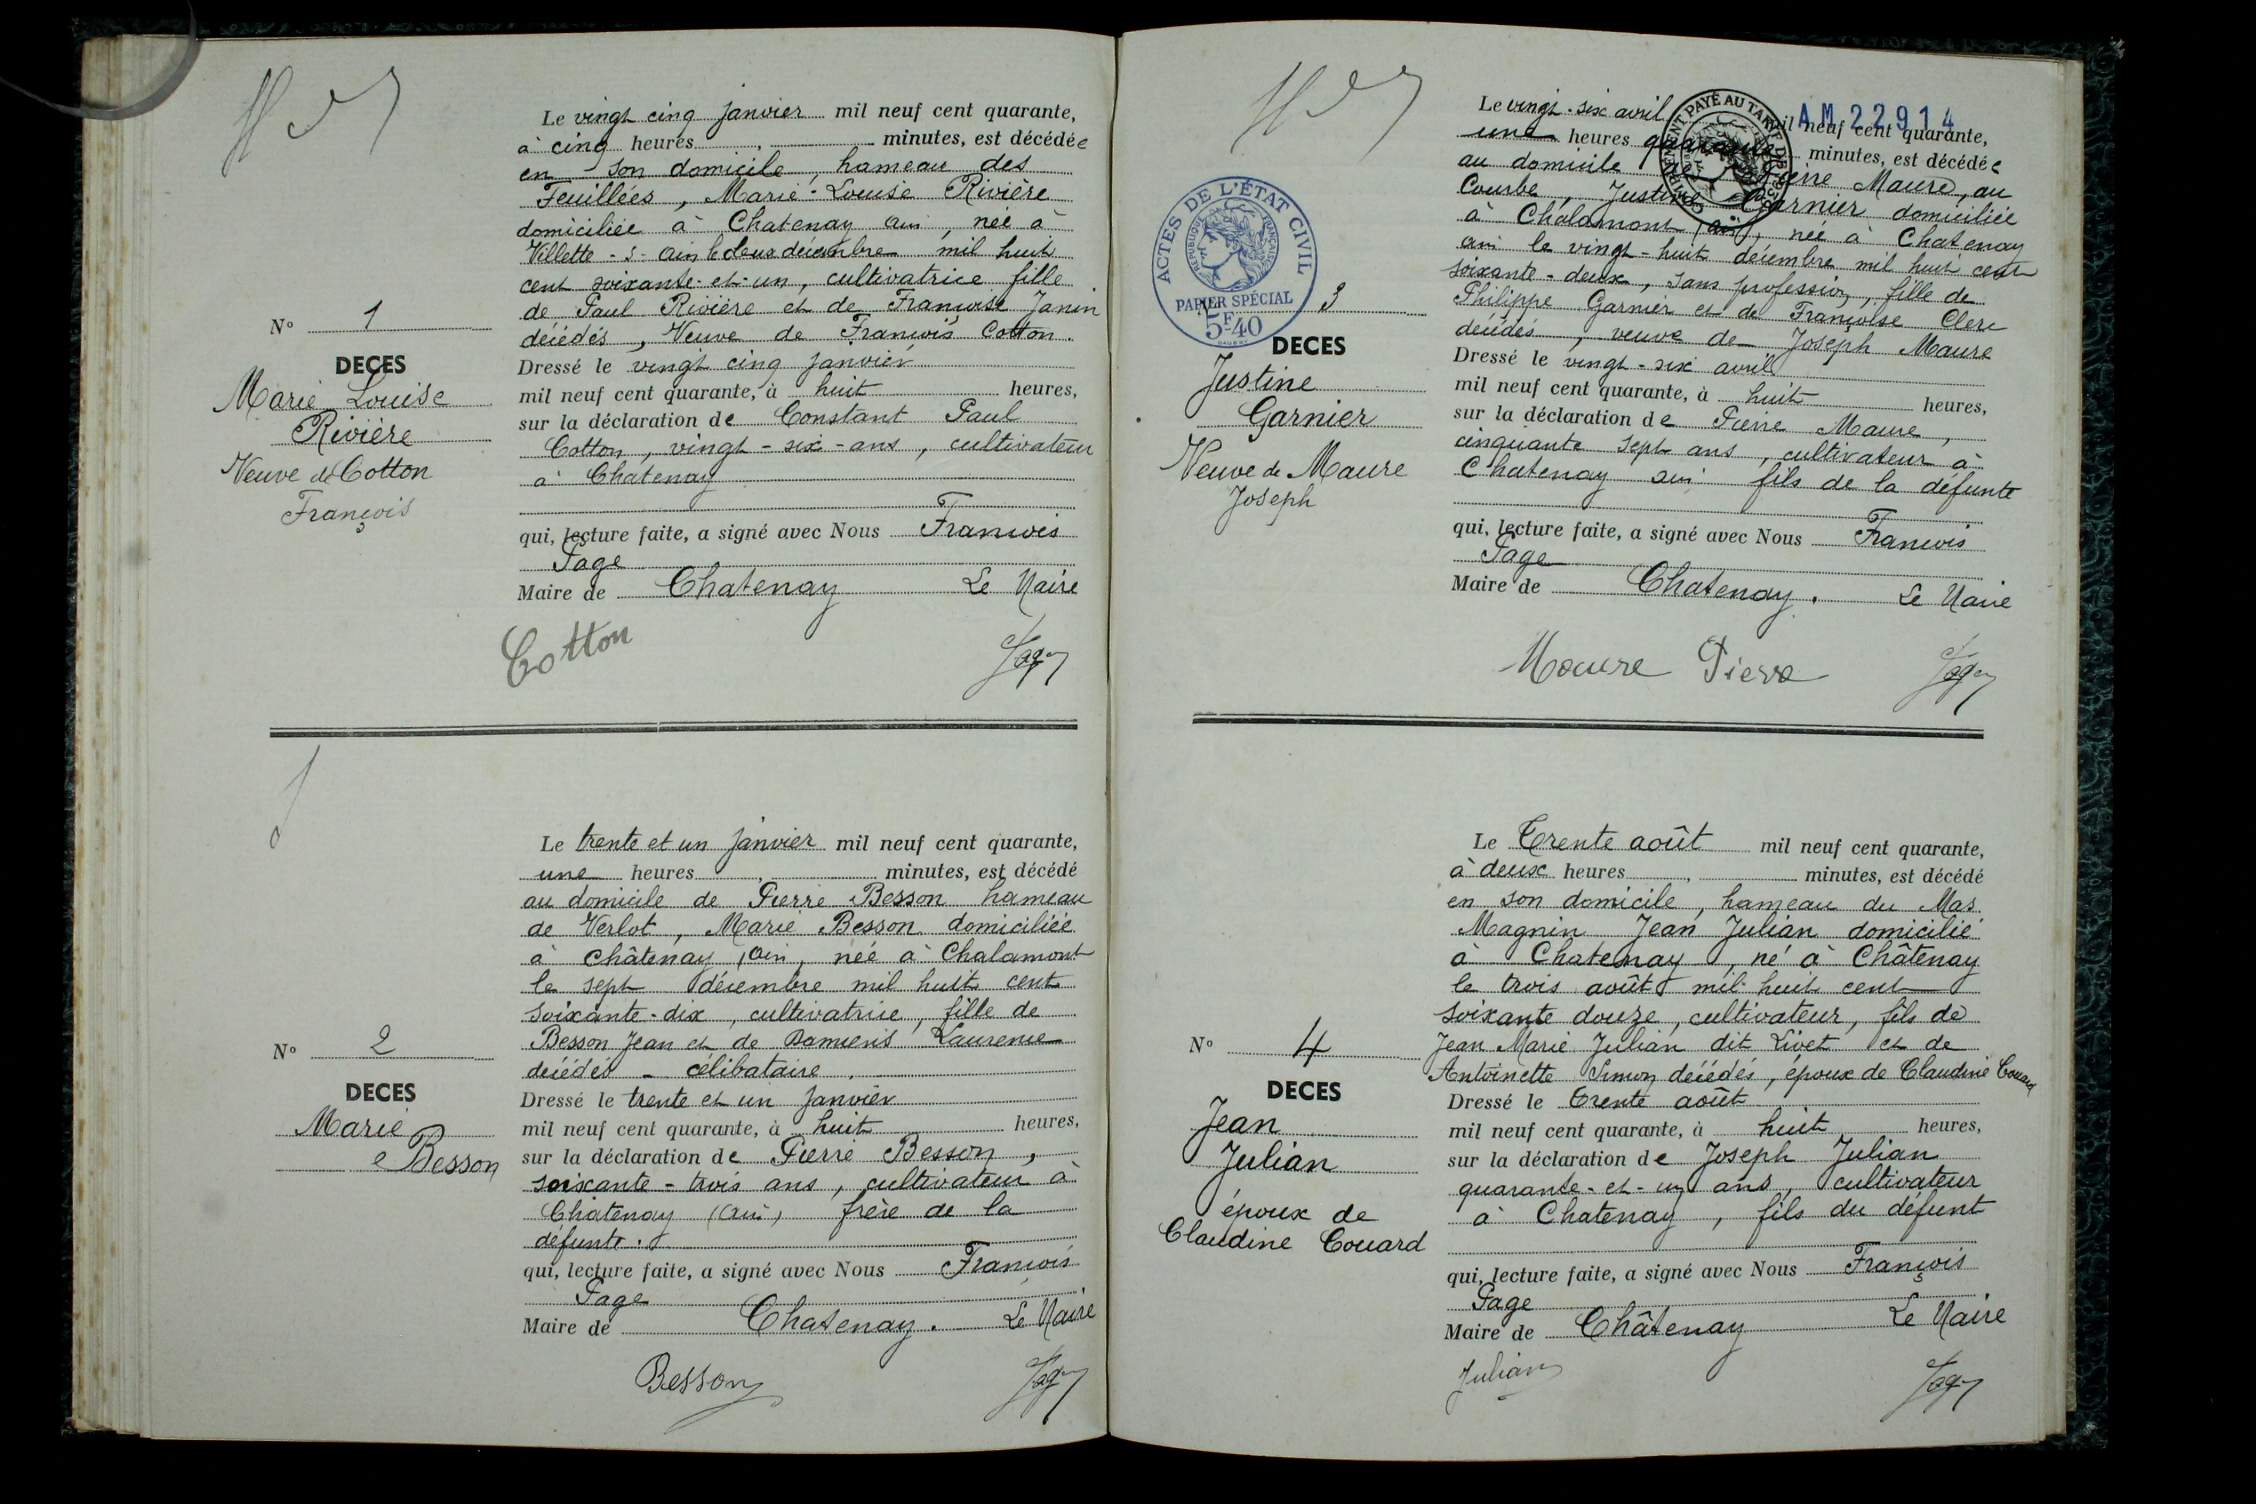 Le vingt cinq janvier mil neuf cent quarante,
à cinq heures , minutes, est décédée
en son domicile, hameau des
Feuillées, Marie-Louise Rivière
domiciliée à Chatenay ain, née à
Villette-s-ain le deux décembre mil huit
cent soixante-et-un, cultivatrice fille
de Paul Rivière et de Françoise Janin
décédés, Veuve de François Cotton.
N° 1
DECES
Marie Louise
Rivière
Veuve de Cotton
François
Dressé le vingt cinq janvier
mil neuf cent quarante, à huit heures,
sur la déclaration de Constant Paul
Cotton, vingt-six-ans, cultivateur
à Chatenay
qui, lecture faite, a signé avec Nous François
Page
Maire de Chatenay Le Maire
Cotton Page
Le trente et un janvier mil neuf cent quarante,
une heures , minutes, est décédé
au domicile de Pierre Besson hameau
de Verlot, Marie Besson domiciliée
à Châtenay, ain, née à Chalamont
le sept décembre mil huit cent
soixante-dix, cultivatrice, fille de
Besson Jean et de Laurence
décédés - célibataire.
N° 2
DECES
Marie
Besson
Dressé le trente et un janvier
mil neuf cent quarante, à huit heures,
sur la déclaration de Pierre Besson,
soixante-trois ans, cultivateur à
Chatenay (ain) frère de la
défunte.
qui, lecture faite, a signé avec Nous François
Page
Maire de Chatenay. Le Maire
Besson Page
AM 22914
Le vingt-six avril mil neuf cent quarante,
une heures quarante minutes, est décédée
au domicile de Pierre Maure, au
Courbe, Justine Garnier domiciliée
à Chalamont (ain), née à Chatenay
ain le vingt-huit décembre mil huit cent
soixante-deux, sans profession, fille de
Philippe Garnier et de Françoise Clerc
décédés, veuve de Joseph Maure
ACTES DE L'ÉTAT CIVIL
RÉPUBLIQUE FRANÇAISE
PAPIER SPÉCIAL
5F40
3
DECES
Justine
Garnier
Veuve de Maure
Joseph
Dressé le vingt-six avril
mil neuf cent quarante, à huit heures,
sur la déclaration de Pierre Maure,
cinquante sept ans, cultivateur à
Chatenay ain fils de la défunte
qui, lecture faite, a signé avec Nous François
Page
Maire de Chatenay. Le Maire
Maure Pierre Page
Le Trente août mil neuf cent quarante,
à deux heures , minutes, est décédé
en son domicile, hameau du Mas
Magnin Jean Julian domicilié
à Chatenay, né à Châtenay
le trois août mil huit cent
soixante douze, cultivateur, fils de
Jean Marie Julian dit Livet et de
Antoinette Simon décédés, époux de Claudine Couard
N° 4
DECES
Jean
Julian
époux de
Claudine Couard
Dressé le Trente août
mil neuf cent quarante, à huit heures,
sur la déclaration de Joseph Julian
quarante-et-un ans, cultivateur
à Chatenay, fils du défunt
qui, lecture faite, a signé avec Nous François
Page
Maire de Châtenay Le Maire
Julian Page